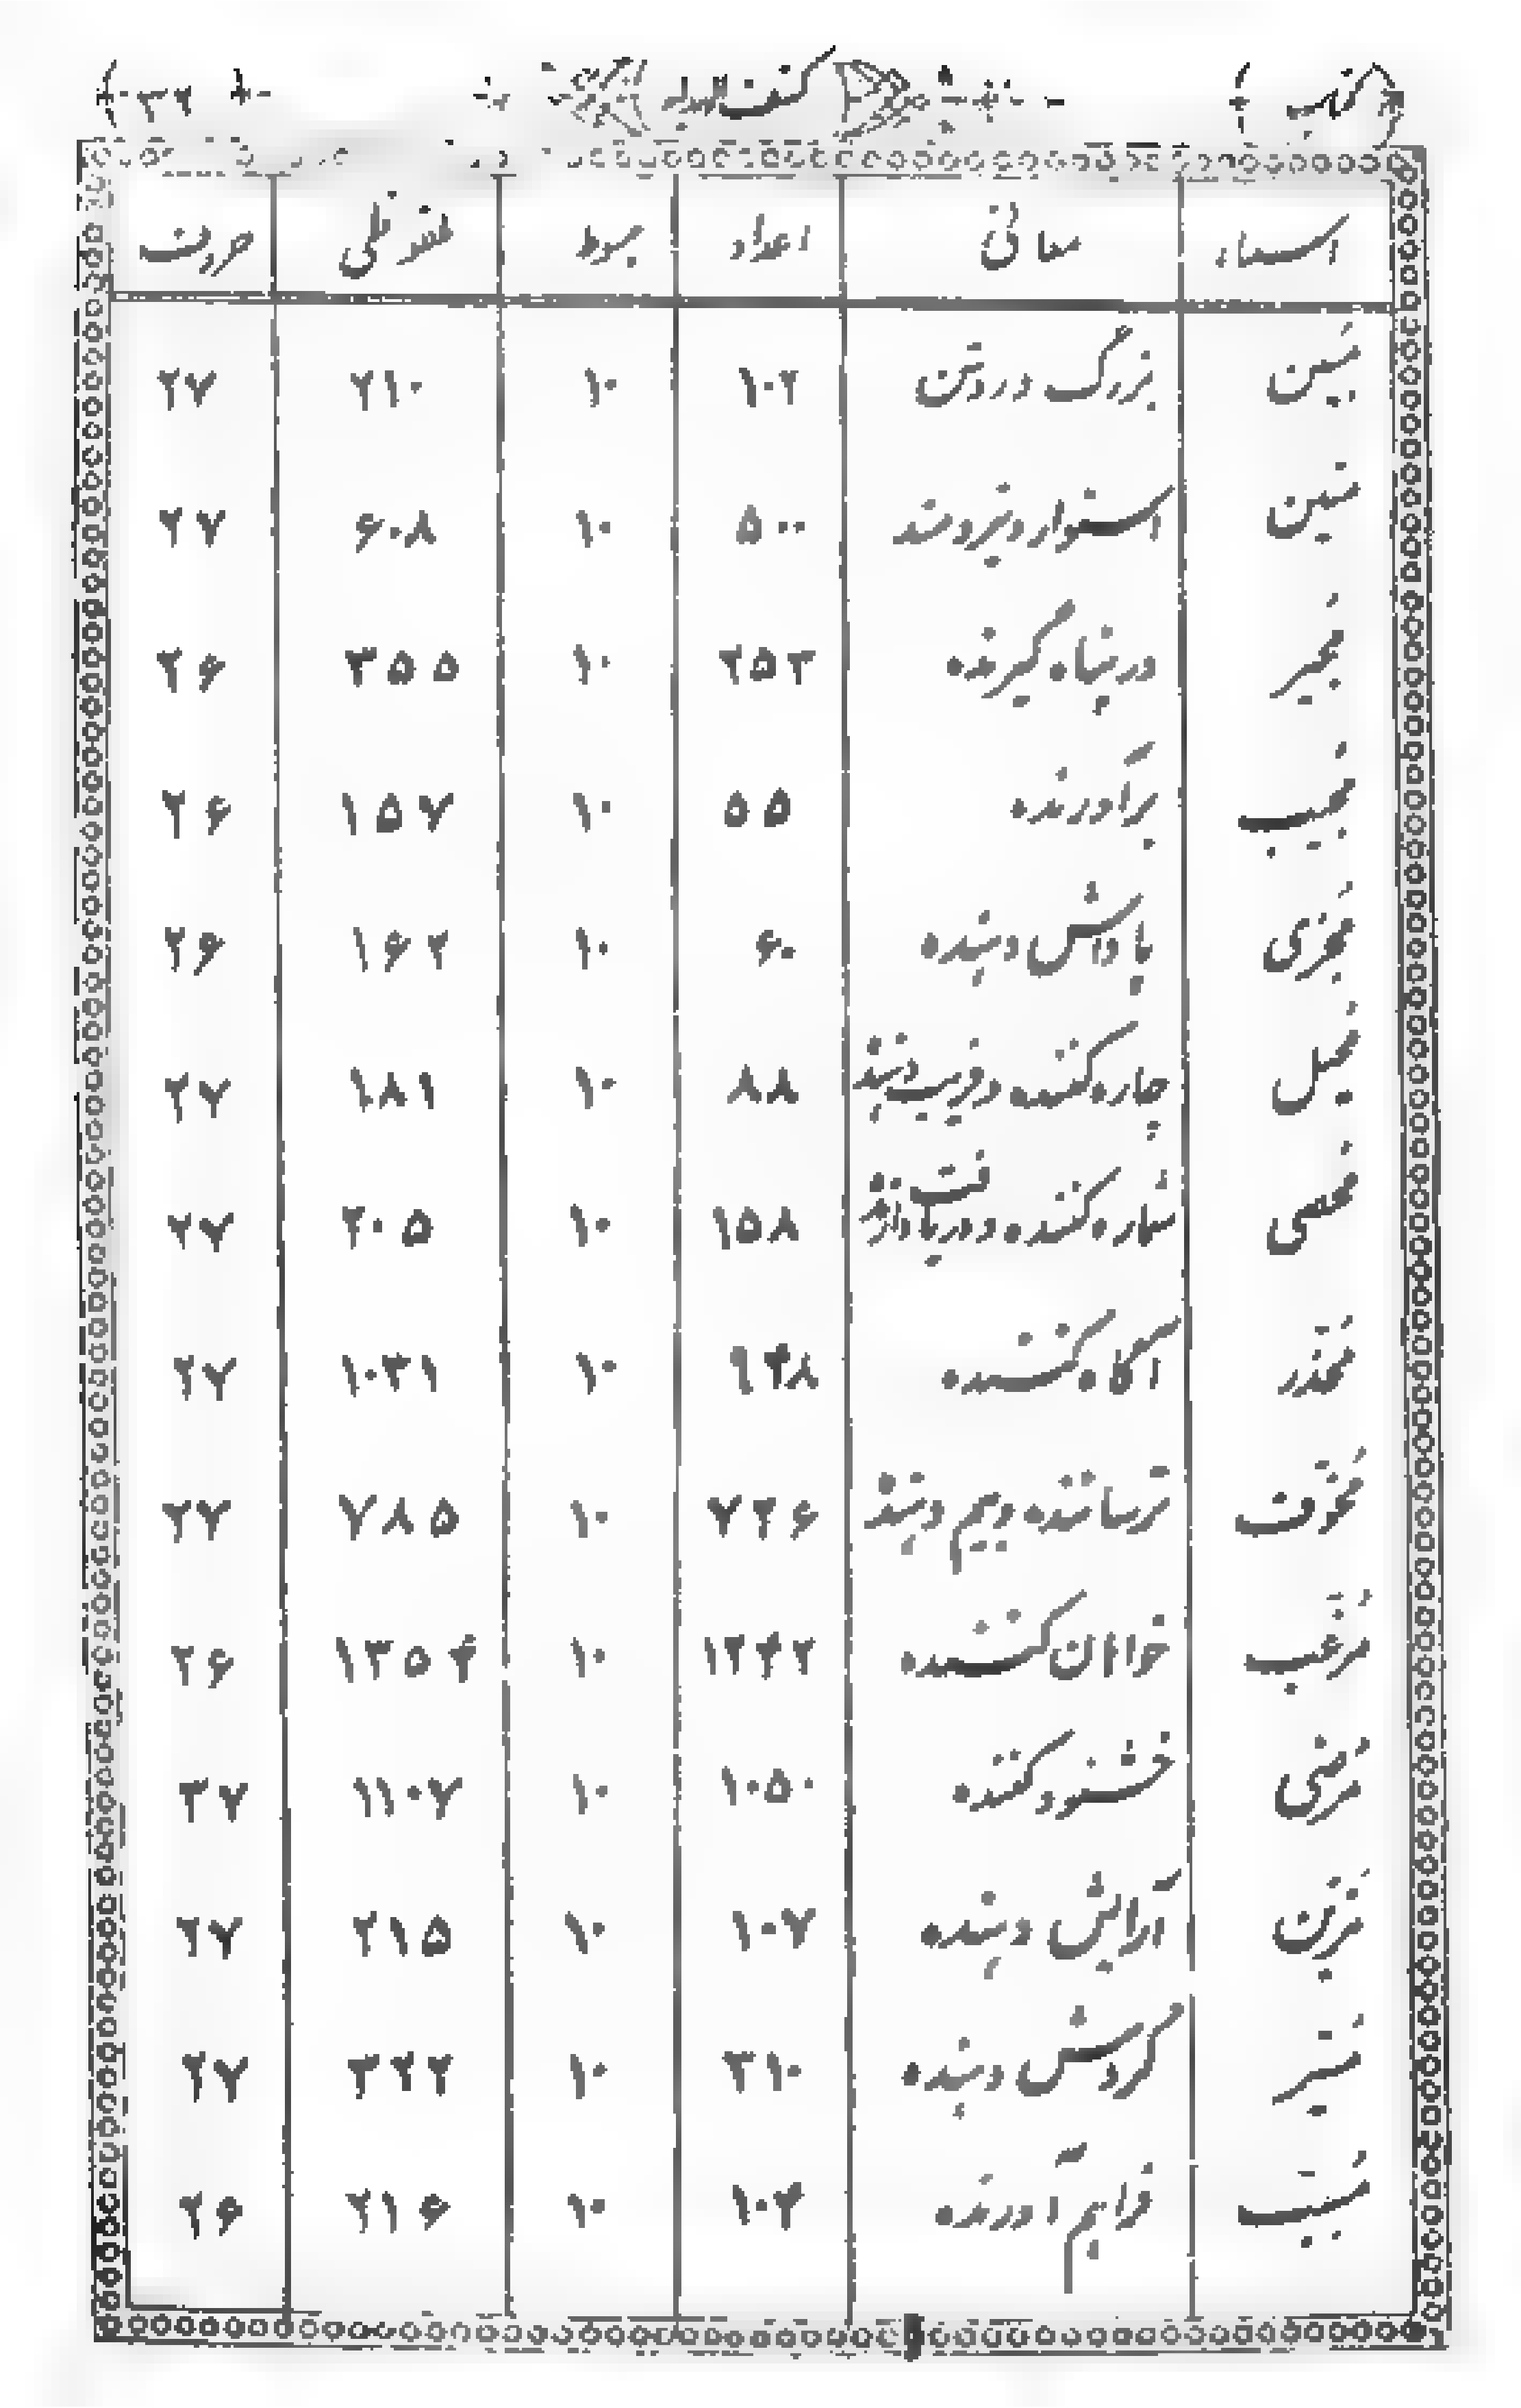 اسماء معانی اعداد مبسوط ملفوظی حروف
مبین بزرگ و روشن ۱۰۲ ۱۰ ۲۱۰ ۲۷
متین استوار و نیرومند ۵۰۰ ۱۰ ۶۰۸ ۲۷
مجیر در پناه گیرنده ۲۵۳ ۱۰ ۳۵۵ ۲۶
مجیب برآورنده ۵۵ ۱۰ ۱۵۷ ۲۶
مجزی پاداش دهنده ۶۰ ۱۰ ۱۶۲ ۲۶
محیل چاره کننده و فریب دهنده ۸۸ ۱۰ ۱۸۱ ۲۷
محصی شماره کننده و دریافت ۱۵۸ ۱۰ ۲۰۵ ۲۷
محذر آگاه کننده ۱۰ ۱۰۳۱ ۲۷
مخوف ترساننده و بیم دهنده ۷۲۶ ۱۰ ۷۸۵ ۲۷
مرغب خواهان کننده ۱۲۴۲ ۱۰ ۱۳۵۴ ۲۶
مرضی خشنود کننده ۱۰۵۰ ۱۰ ۱۱۰۷ ۲۷
مزین آرایش دهنده ۱۰۷ ۱۰ ۲۱۵ ۲۷
مسیر گردش دهنده ۳۱۰ ۱۰ ۳۲۲ ۲۷
مسبب فراهم آورنده ۱۰۴ ۱۰ ۲۱۶ ۲۶